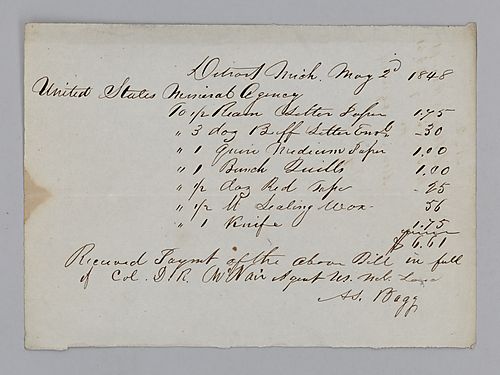 Detroit Mich. May 2d 1848
United States Mineral Agency
To 1/2 Ream Letter Paper 1.75
" 3 doz Buff Letter Envl. -30
" 1 Quire Medium Paper 1.00
" 1 Bunch Quills 1.00
" 1/2 doz Red Tape -25
" 1/2 lb Sealing Wax 56
" 1 Knife 1.75
$ 6.61
Received Paymt of the above Bill in full
of Col. D. R. McNair Agent US.
As. Bagg